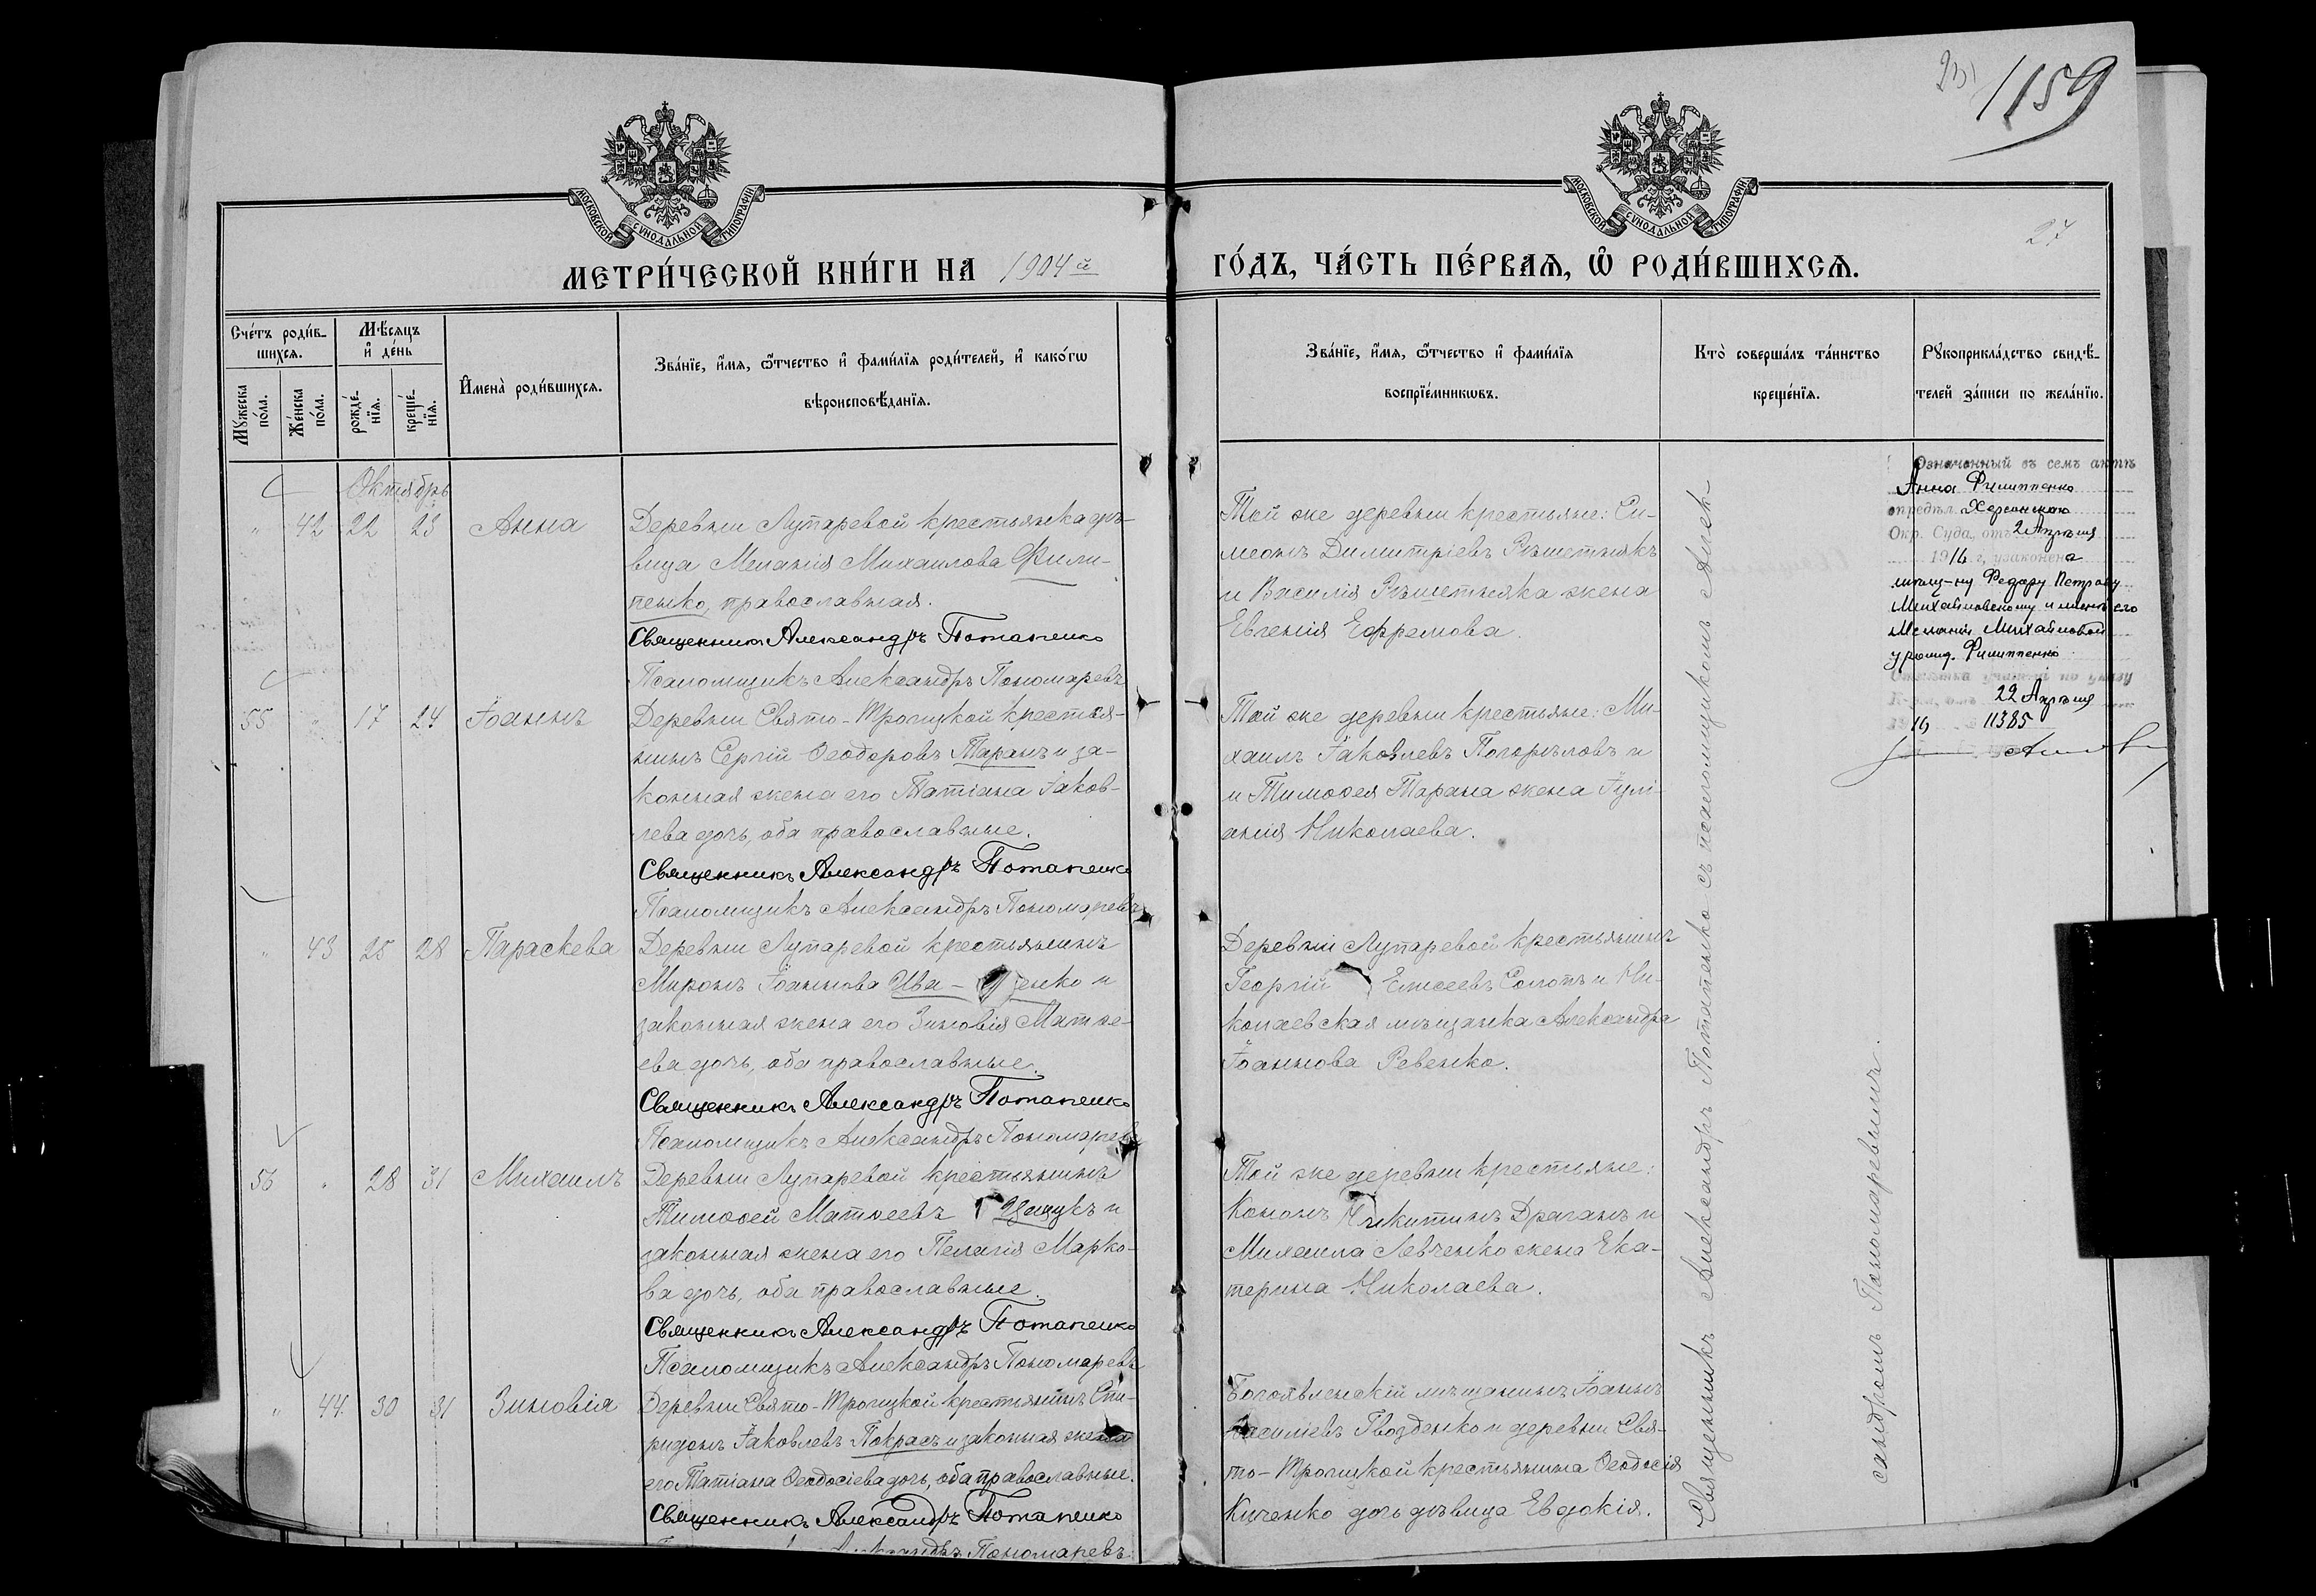 1159
27
МОСКОВСКОЙ СУНОДАЛЬНОЙ ТИПОГРАФІИ
МОСКОВСКОЙ СУНОДАЛЬНОЙ ТИПОГРАФІИ
МЕТРИ́ЧЕСКОЙ КНИ́ГИ НА 1904й
ГО́ДЪ, ЧА́СТЬ ПЕ́РВАѦ, Ѡ РОДИ́ВШИХСѦ.
Сче́тъ роди́в-
шихсѧ.
Мꙋжеска по́ла.
Же́нска по́ла.
Мѣ́сяцъ
и де́нь
рожде́-
нїѧ.
креще́-
нїѧ.
Имена̀ роди́вшихсѧ.
Зва́нїе, и́мѧ, ѻ҆́тчество и фами́лїѧ роди́телей, и како́гѡ
вѣроисповѣ́данїѧ.
Зва́нїе, и́мѧ, ѻ҆́тчество и фами́лїѧ
воспрїе́мникѡвъ.
Кто̀ соверша́лъ та́инство
креще́нїѧ.
Рꙋкоприкла́дство свидѣ́-
телей за́писи по жела́нїю.
Октябрь
" 42 22 23 Анна
Деревни Лупаревой крестьянка дѣ-
вица Меланія Михаилова Фили-
пенко, православная.
Священникъ Александръ Потапенко
Псаломщикъ Александръ Пономаревъ
Той же деревни крестьяне: Си-
меонъ Димитріевъ Рѣшетнякъ
и Василія Рѣшетняка жена
Евгенія Ефремова.
Означенный въ семъ актѣ
Анна Филиппенко
опредѣл. Херсонскаго
Окр. Суда, отъ 2 Апрѣля
1916 г, узаконена
мѣщ-ну Федору Петрову
Михайловскому и женѣ его
Меланіи Михайловой
урожд. Филиппенко
22 Апрѣля
1916 11385
55 " 17 24 Іоаннъ
Деревни Свято-Троицкой крестья-
нинъ Сергій Ѳеодоровъ Таранъ и за-
конная жена его Татіана Іаков-
лева дочь, оба православные.
Священникъ Александръ Потапенко
Псаломщикъ Александръ Пономаревъ
Той же деревни крестьяне: Ми-
хаилъ Іаковлевъ Погорѣловъ и
и Тимоѳея Тарана жена Іулі-
анія Николаева.
" 43 25 28 Параскева
Деревни Лупаревой крестьянинъ
Миронъ Іоаннова Ива- щенко и
законная жена его Зиновія Матѳе-
ева дочь, оба православные.
Священникъ Александръ Потапенко
Псаломщикъ Александръ Пономаревъ
Деревни Лупаревой крестьянинъ
Георгій Елисеевъ Солопъ и Ни-
колаевская мѣщанка Александра
Іоаннова Ревенко.
56 " 28 31 Михаилъ
Деревни Лупаревой крестьянинъ
Тимоѳей Матѳеевъ Ищукъ и
законная жена его Пелагія Марко-
ва дочь, оба православные.
Священникъ Александръ Потапенко
Псаломщикъ Александръ Пономаревъ
Той же деревни крестьяне:
Кононъ Никитинъ Драганъ и
Михаила Левченко жена Ека-
терина Николаева.
" 44 30 31 Зиновія
Деревни Свято-Троицкой крестьянинъ Спи-
ридонъ Іаковлевъ Покрасъ и законная жена
его Татіана Ѳеодосіева дочь, оба православные.
Священникъ Александръ Потапенко
Александръ Пономаревъ
Богоявленскій мѣщанинъ Іоаннъ
Василіевъ Гвозденко и деревни Свя-
то-Троицкой крестьянина Ѳеодосія
Киченко дочь дѣвица Евдокія.
Священникъ Александръ Потапенко съ псаломщикомъ Алек-
сандромъ Пономаревымъ.